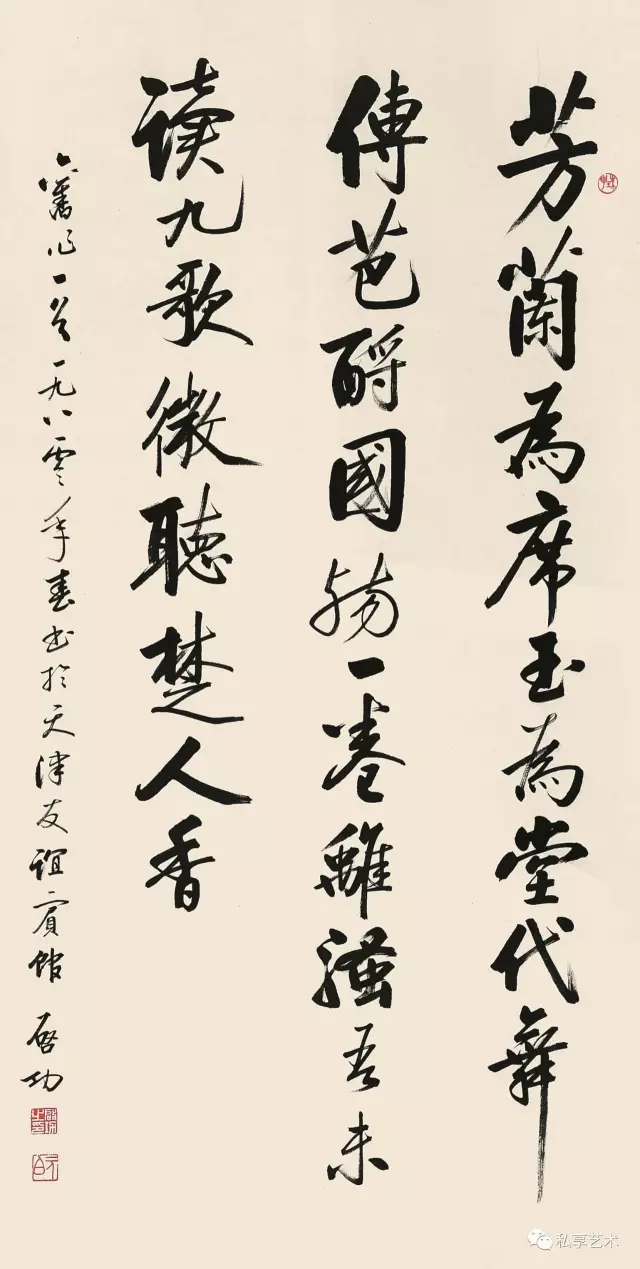 芳蘭為席玉為堂代舞
傳芭酹國殤一卷離騷吾未
讀九歌微聽楚人香
舊作一首一九八零年春書於天津友誼賓館 啓功
私享艺术